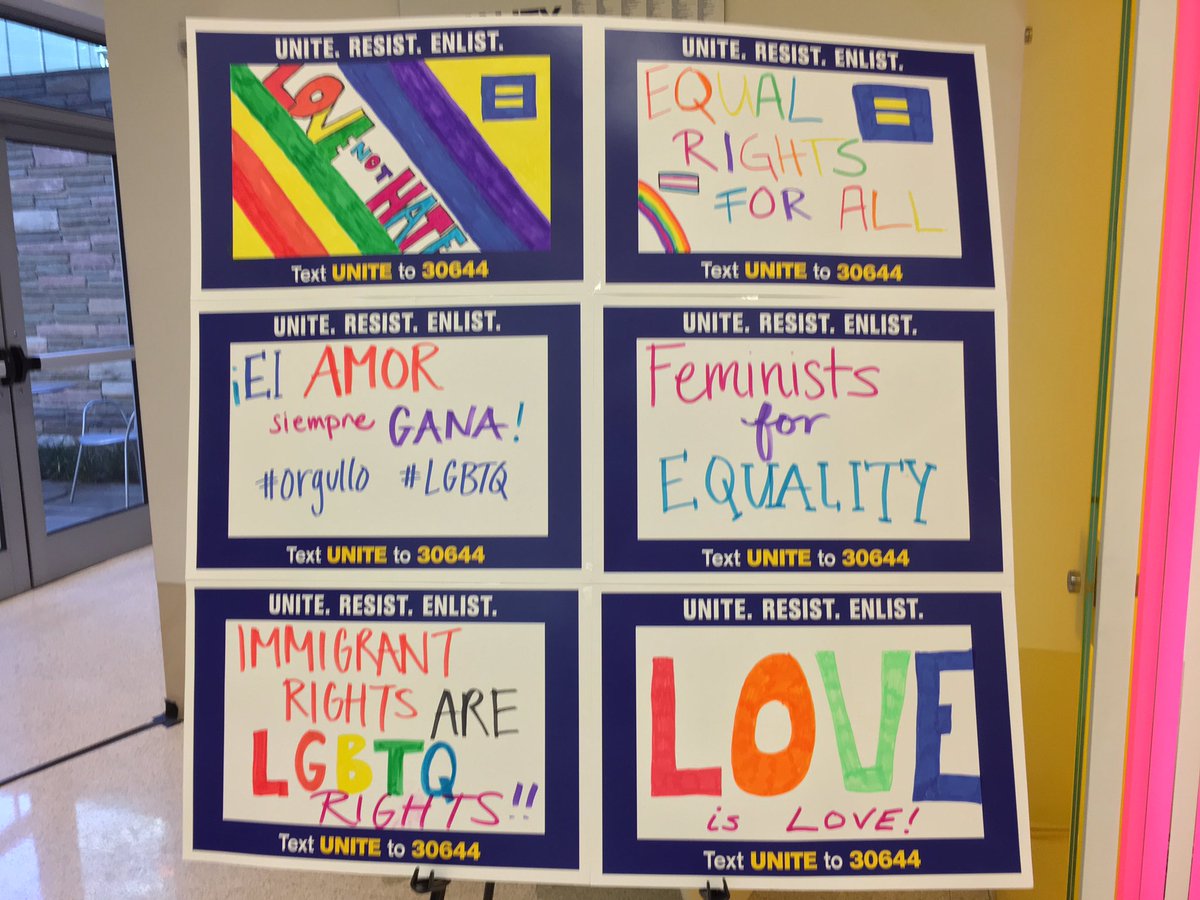 UNITE. RESIST. ENLIST.
LOVE
NOT
HATE
Text UNITE to 30644
UNITE. RESIST. ENLIST.
EQUAL
RIGHTS
FOR ALL
Text UNITE to 30644
UNITE. RESIST. ENLIST.
¡El AMOR
siempre GANA!
#orgullo #LGBTQ
Text UNITE to 30644
UNITE. RESIST. ENLIST.
Feminists
for
EQUALITY
Text UNITE to 30644
UNITE. RESIST. ENLIST.
IMMIGRANT
RIGHTS ARE
LGBTQ
RIGHTS!!
Text UNITE to 30644
UNITE. RESIST. ENLIST.
LOVE
is LOVE!
Text UNITE to 30644